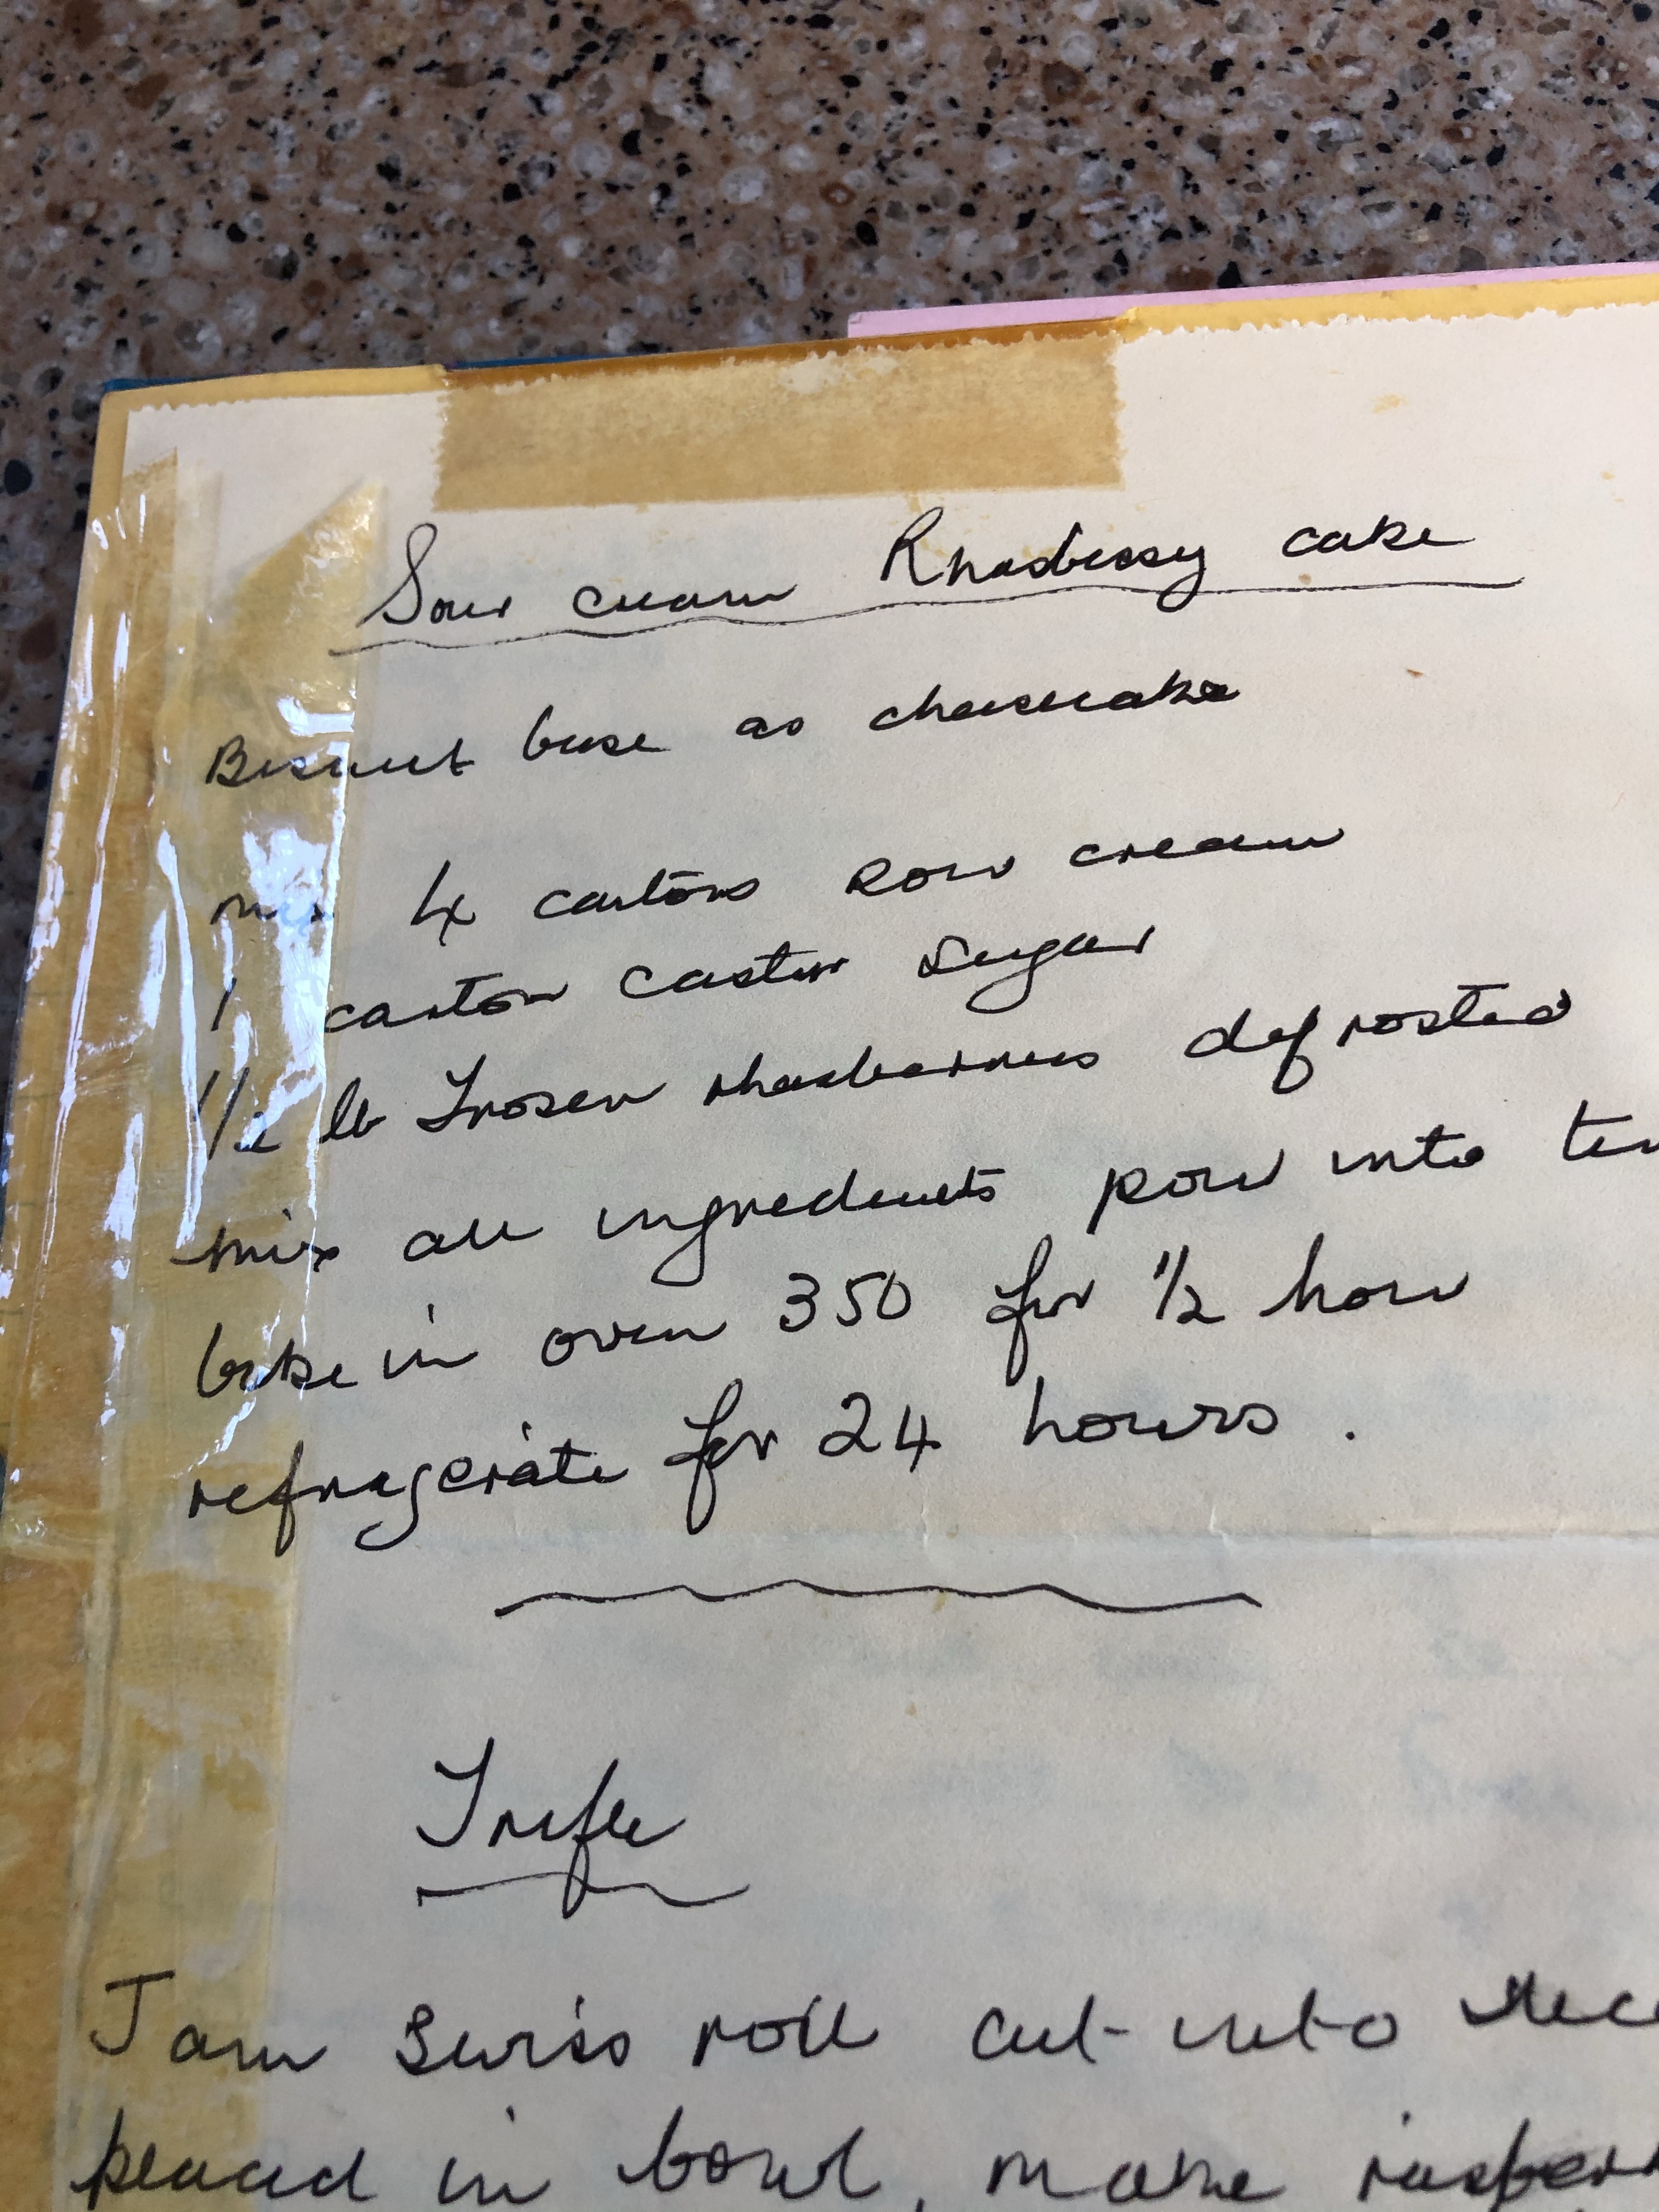 Sour cream Rhasberry cake
Biscuit base as cheesecake
mix 4 cartons sour cream
1 carton caster sugar
1/2 lb Frozen rhasberries defrosted
mix all ingredients pour into
bake in oven 350 for 1/2 hour
refragerate for 24 hours.
Trifle
Jam Swiss roll cut into
placed in bowl, make